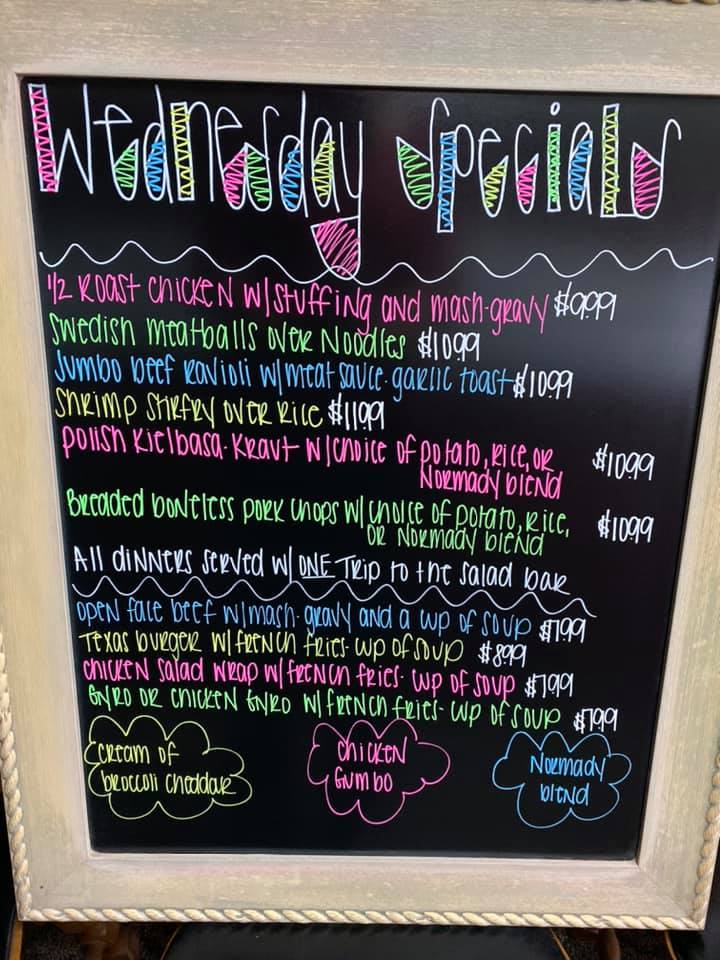 Wednesday Specials
1/2 Roast chicken w/stuffing and mash-gravy $9.99
Swedish meatballs over Noodles $10.99
Jumbo beef Ravioli w/meat sauce-garlic toast $10.99
Shrimp stirfry over Rice $11.99
Polish Kielbasa-Kraut w/choice of potato, rice, or $10.99
Normady blend
Breaded boneless pork chops w/choice of potato, rice, $10.99
or Normady blend
All dinners served w/ ONE Trip to the salad bar
open face beef w/mash-gravy and a cup of soup $7.99
Texas burger w/french fries-cup of soup $8.99
chicken salad wrap w/french fries-cup of soup $7.99
Gyro or chicken Gyro w/french fries-cup of soup $7.99
cream of
broccoli cheddar
chicken
Gumbo
Normady
blend